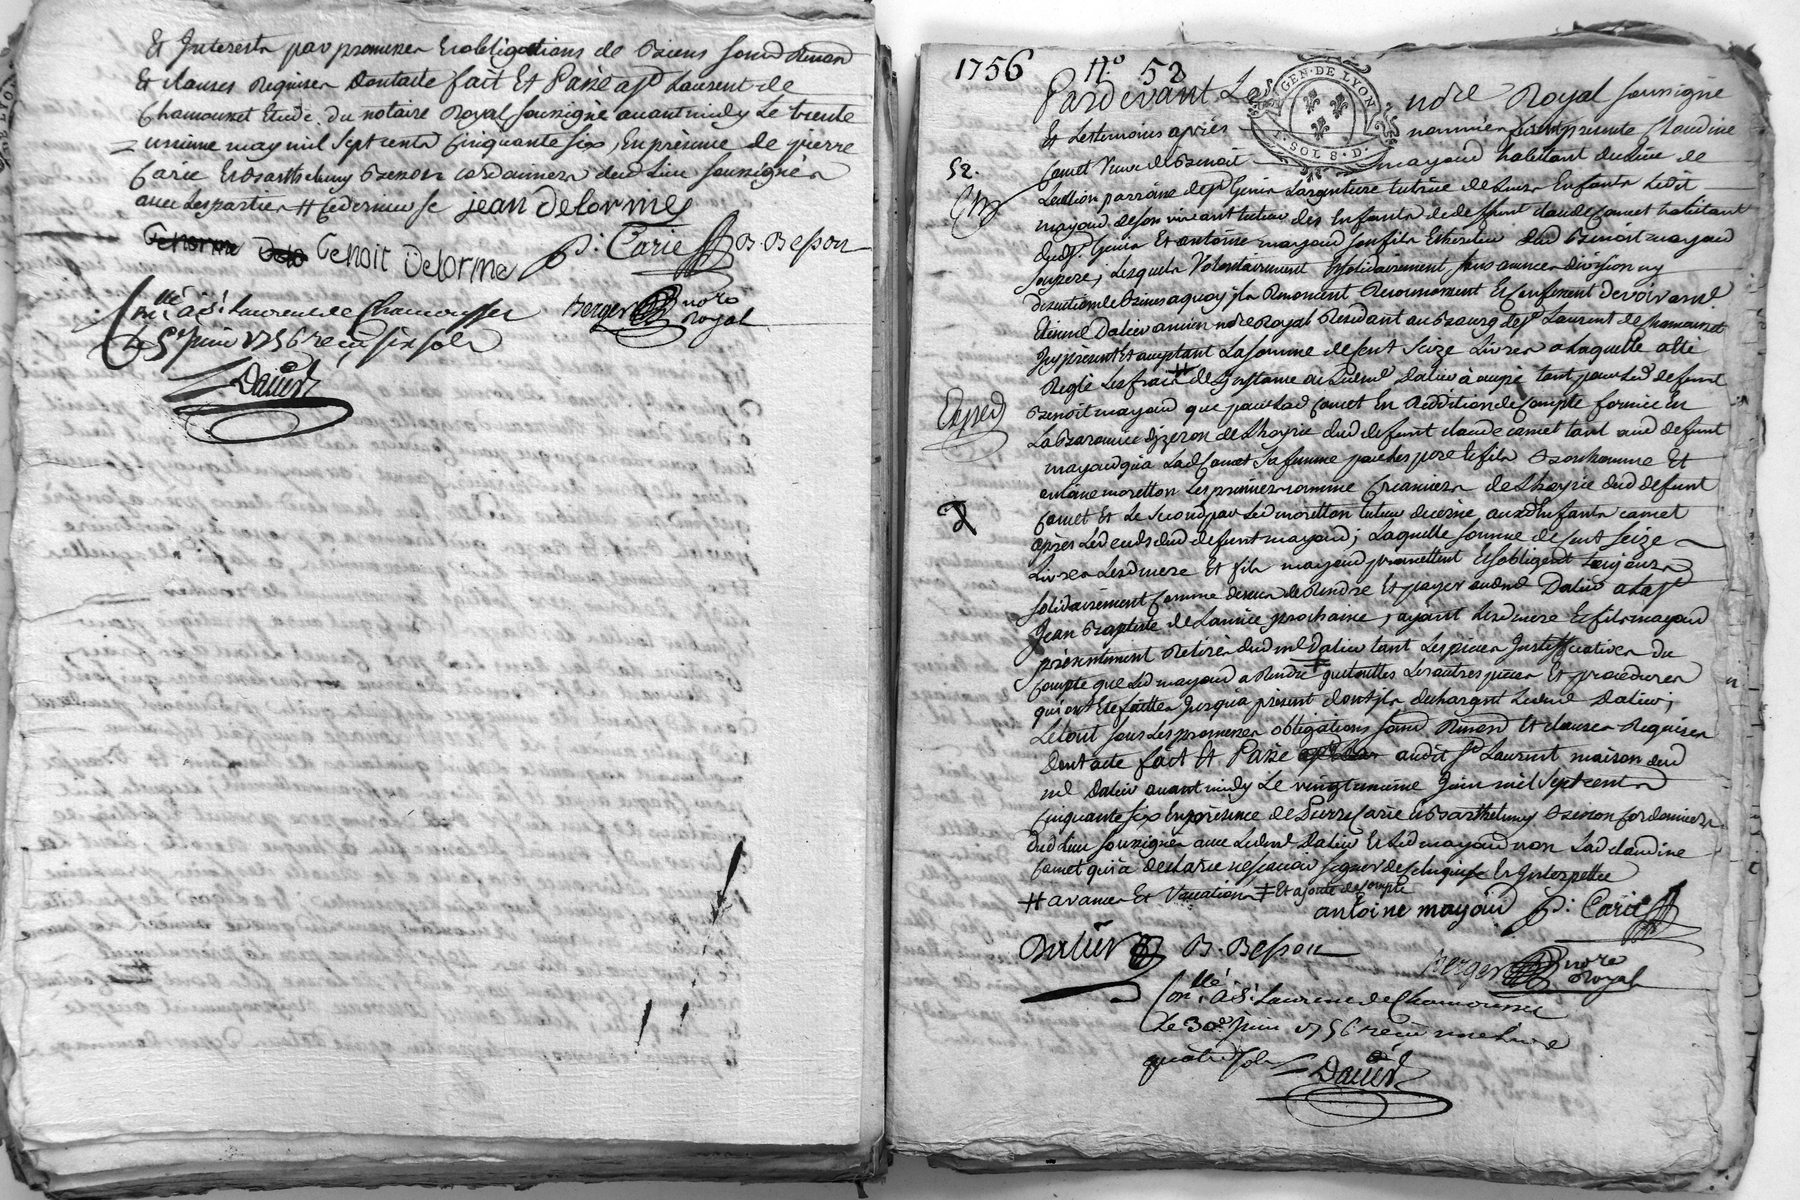 Et Interests par promesses Et obligations de Biens soumd Renond
Et clauses Requises Dontacte fait Et Passé a St Laurent de
Chamousset Etude du notaire Royal soussigné avant midy Le trente
unieme may mil sept cents Cinquante six, En présence de pierre
Carie Et Barthelemy Besson cordonniers dud Lieu soussignés
avec Les parties # Cederniere se jean Delormes
Benoit Delorme P: Carie B. Besson
Con.llé a St Laurent de Chamousset Berger no.re Royal
Le 5e Juin 1756 recu six sols
Dalier
1756 N.o 52
Pardevant Le no.re Royal soussigné
GEN. DE LYON
SOLS. D.
Et Les temoins après nommés furent presents Claudine
52.
Camet Veuve de Benoit mayoud habitant du Lieu de
parroisse de St Genis Largentiere tutrice de Leurs Enfants Ledit
mayoud de son vivant tuteur des Enfants de deffunt claude Camet habitant
dud St Genis Et antoine mayoud son fils Et heritier dud Benoit mayoud
son pere; Lesquels Volontairement Et solidairement sans aucune division ny
discution de Biens a quoy ils Renoncent Reconnoissent Et Confessent devoir a me
Etienne Dalier ancien no.re Royal Residant au Bourg de St Laurent de Chamousset
Icy présent Et acceptant La somme de Cent seize Livres a Laquelle a Eté
Reglé Les frais # de Linstance
Exped
Benoit mayoud que pour Lad Camet En Reddition de Compte formée En
La Baronnie dyzeron de Lhoyrie dud deffunt claude camet tant aud deffunt
mayoud qua Lad Camet sa femme par Les pere Et fils Bonhomme Et
antoine moretton Les premiers comme Creanciers de Lhoyrie dud deffunt
Camet Et Le second par Led moretton tuteur décerné auxd Enfants camet
après Le deceds dud deffunt mayoud; Laquelle somme de Cent seize
Livres Lesd mere Et fils mayoud promettent Et sobligent toujours
solidairement Comme dessus de Rendre Et payer aud me Dalier a La St
Jean Baptiste de Lannée prochaine, ayant Lesd mere Et fils mayoud
présentement Retiré dud me Dalier tant Les pieces Justifficatives du
Compte que Led mayoud a Rendu ‡ que toutes Les autres pieces Et procedures
qui ont Eté faittes Jusqua présent dont ils dechargent Led me Dalier;
Letout sous Les promesses obligations soumd Renond Et clauses Requises
Dontacte fait Et Passé audit St Laurent maison dud
me Dalier avant midy Le vingt unieme Juin mil sept cents
Cinquante six En présence de Pierre Carie Et Barthelemy Besson Cordonniers
dud Lieu soussignés avec Led me Dalier Et Led mayoud non Lad claudine
Camet qui a declaré ne scavoir signer de ce Enquise Et Interpellée
# avances Et Vacations ‡ Et ajouté de compte
antoine mayoud P: Carie
Dalier B. Besson
Berger no.re Royal
Con.llé a St Laurent de Chamousset
Le 30e Juin 1756 recu une Livre
quatre sols
Dalier